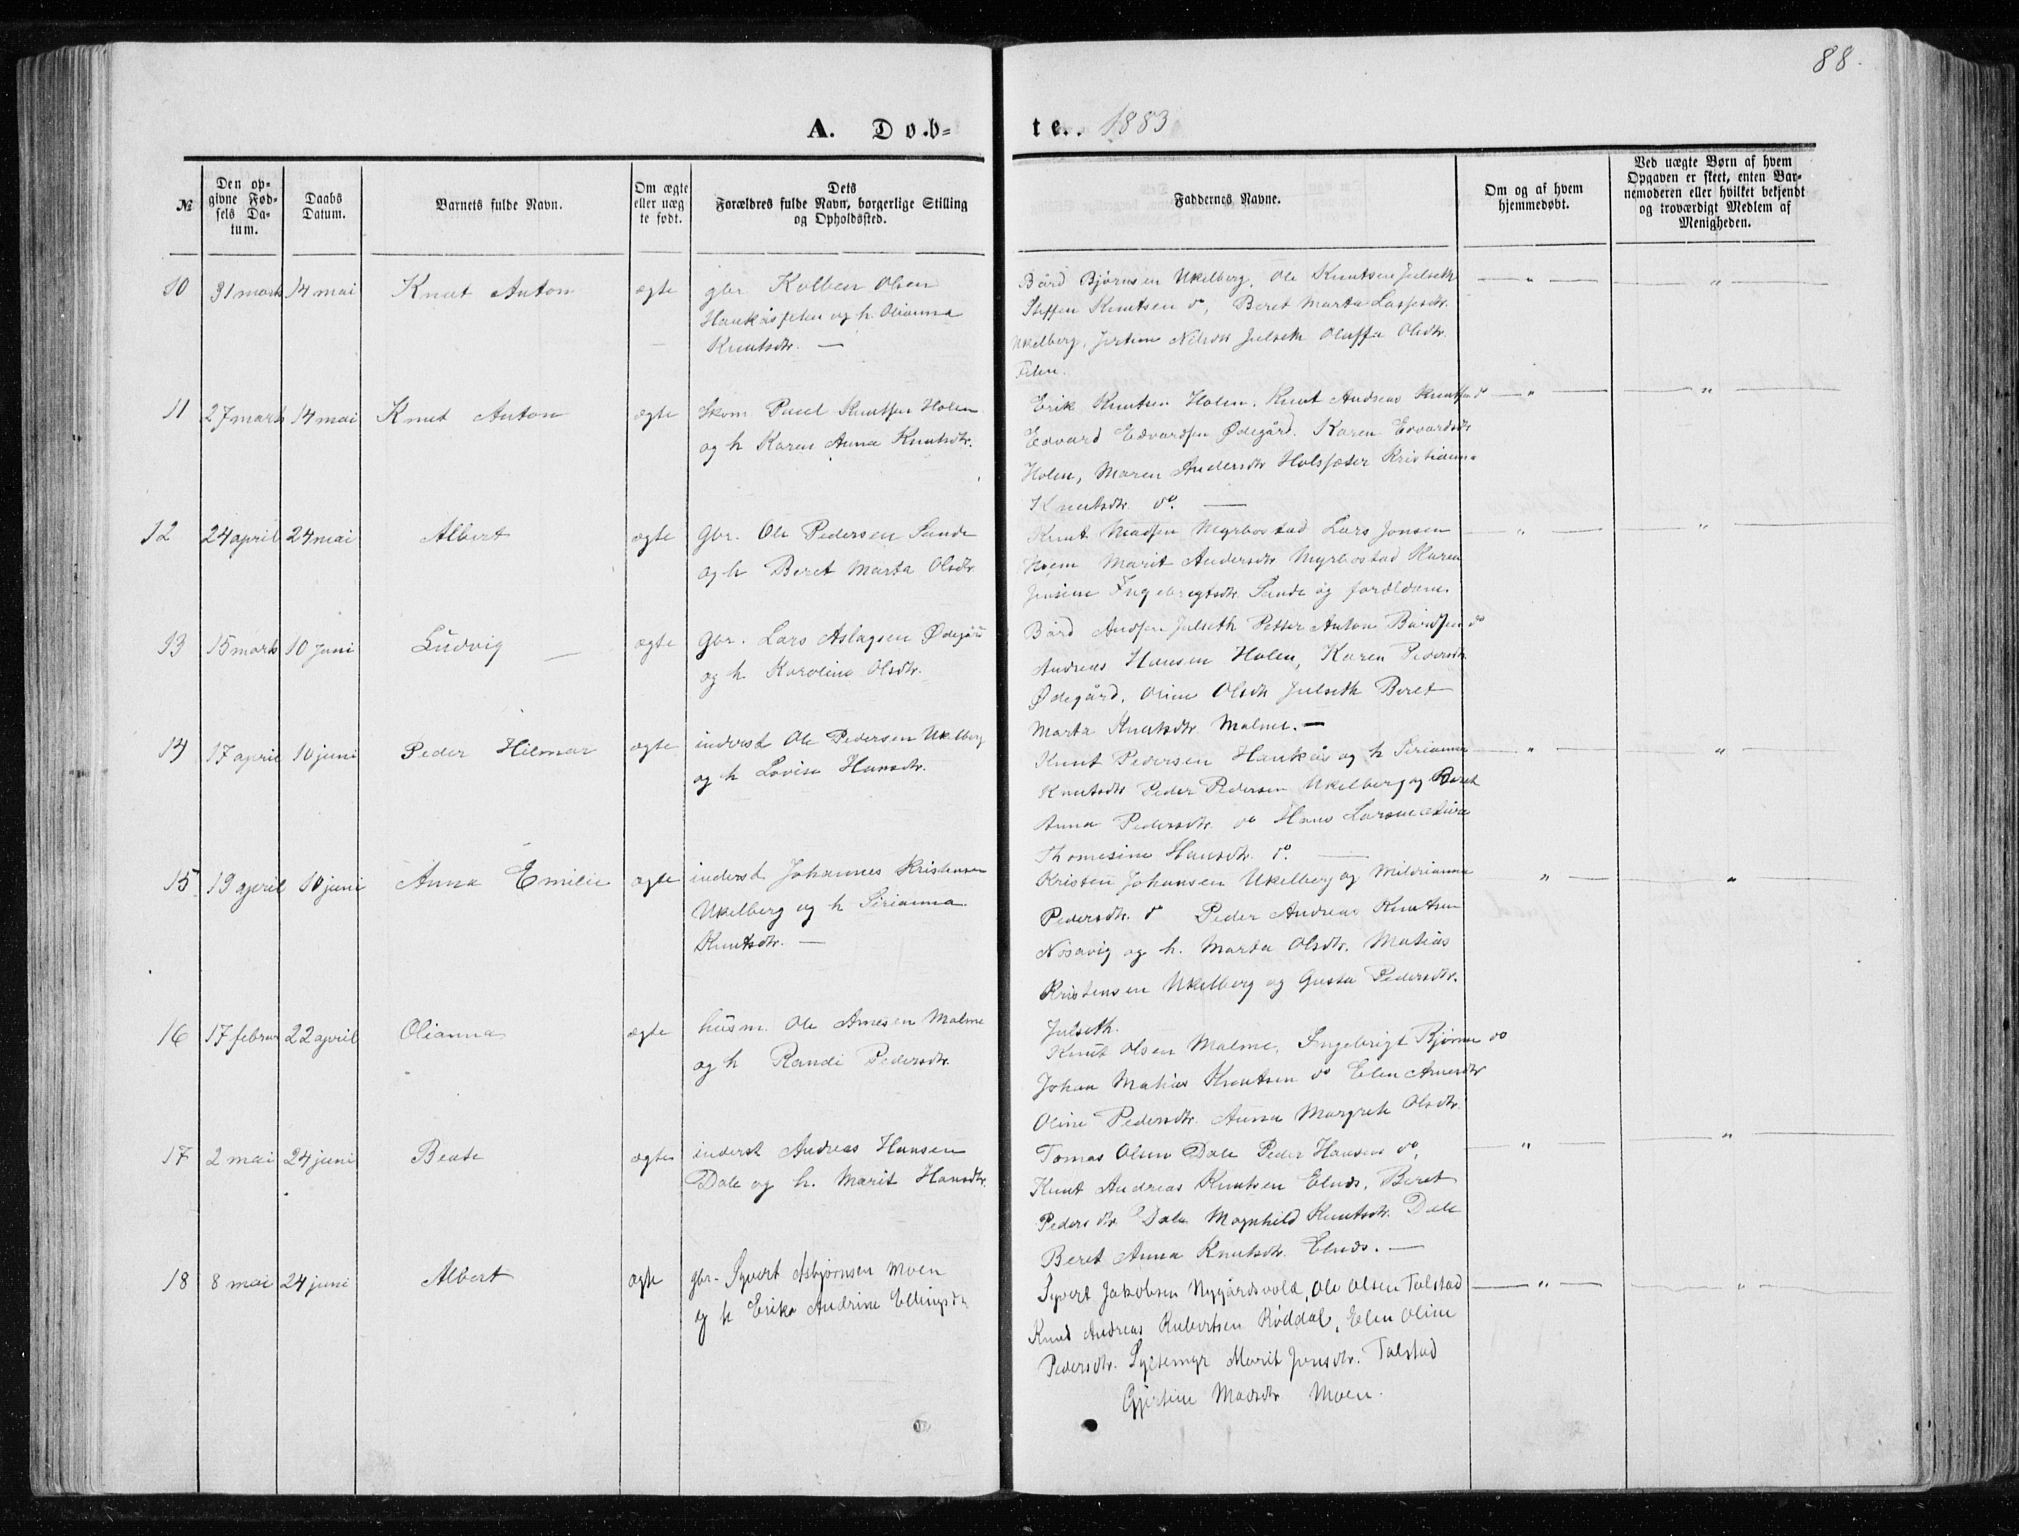 88.
A. Døb-
te. 1883
№
Den op-
givne Fød-
sels Da-
tum.
Daabs
Datum.
Barnets fulde Navn.
Om ægte
eller uæg
te født.
Dets
Forældres fulde Navn, borgerlige Stilling
og Opholdssted.
Faddernes Navne.
Om og af hvem
hjemmedøbt.
Ved uægte Børn af hvem
Opgaven er skeet, enten Bar-
nemoderen eller hvilket bekjendt
og troværdigt Medlem af
Menigheden.
10 31 marts 14 mai Knut Anton ægte gbr Kolben Olsen
Haukåssetra og h. Olianna
Knutsdtr. —
Bård Bjørnsen Ukelberg, Ole Knutsen Julseth
Steffen Knutsen do, Beret Marta Lassesdtr.
Ukelberg, Nilsdtr Julseth Oluffa Olsdtr.
11 27 marts 14 mai Knut Anton ægte Skom Paul Knutsen Holen
og h Karen Anna Knutsdtr.
Erik Knutsen Holen. Knut Andreas Knutsen do
Edvard Edvardsen Ødegård. Karen Edvardsdtr
Holen, Maren Andersdtr Holssæter Kristianna
Knutsdtr do. —
12 24 april 24 mai Albert ægte gbr. Ole Pedersen Sande
og h Beret Marta Olsdtr.
Knut Madsen Myrbostad Lars Jonsen
Hoem Marit Andersdtr Myrbostad Karen
Jensine Ingebregtsdtr. Sande og forældrene.
13 15 marts 10 juni Ludvig — ægte gbr. Lars Aslagsen Ødegård
og h Karoline Olsdtr.
Bård Andsen Julseth Petter Anton Bårdsen do
Andreas Hansen Holen, Karen Pedersdtr.
Ødegård, Oline Olsdtr Julseth Beret
Marta Knutsdtr. Malme. —
14 17 april 10 juni Peder Hilmar ægte inderst Ole Pedersen Ukelberg
og h Lovise Hansdtr.
Knut Pedersen Haukås og h Sirianna
Knutsdtr Peder Pedersen Ukelberg og Beret
Anna Pedersdtr. do Hans Larsen
Thomesine Hansdtr. do. —
15 19 april 10 juni Anna Emilie ægte inderst Johannes Kristensen
Ukelberg og h Sirianna
Knutsdtr. —
Kristen Johansen Ukelberg og Mildrianna
Pedersdtr. do Peder Andreas Knutsen
Nøsavig og h. Marta Olsdtr. Matias
Kristensen Ukelberg og Gusta Pedersdtr.
Julseth.
16 17 februar 22 april Olianna ægte husm. Ole Arnesen Malme
og h Randi Pedersdtr.
Knut Olsen Malme, Ingebrigt Bjørnsen do
Johan Matias Knutsen do Elen Arnesdtr
Oline Pedersdtr. Anna Margrete Olsdtr.
17 2 mai 24 juni Beate ægte inderst Andreas Hansen
Dale og h. Marit Hansdtr.
Tomas Olsen Dale Peder Hansen do,
Knut Andreas Knutsen Elnes, Beret
Pedersdtr Dale Magnhild Knutsdtr. Dale
Beret Anna Knutsdtr. Elnes. —
18 8 mai 24 juni Albert ægte gbr. Syvert Asbjørnsen Moen
og h Erika Andrine Ellingsdtr
Syvert Jakobsen Nygårdsvold, Ole Olsen Talstad
Knud Andreas Rubertsen Røddal, Elen Oline
Pedersdtr. Syltemyr Marit Jensdtr. Talstad
Gjertine Madsdtr Moen.